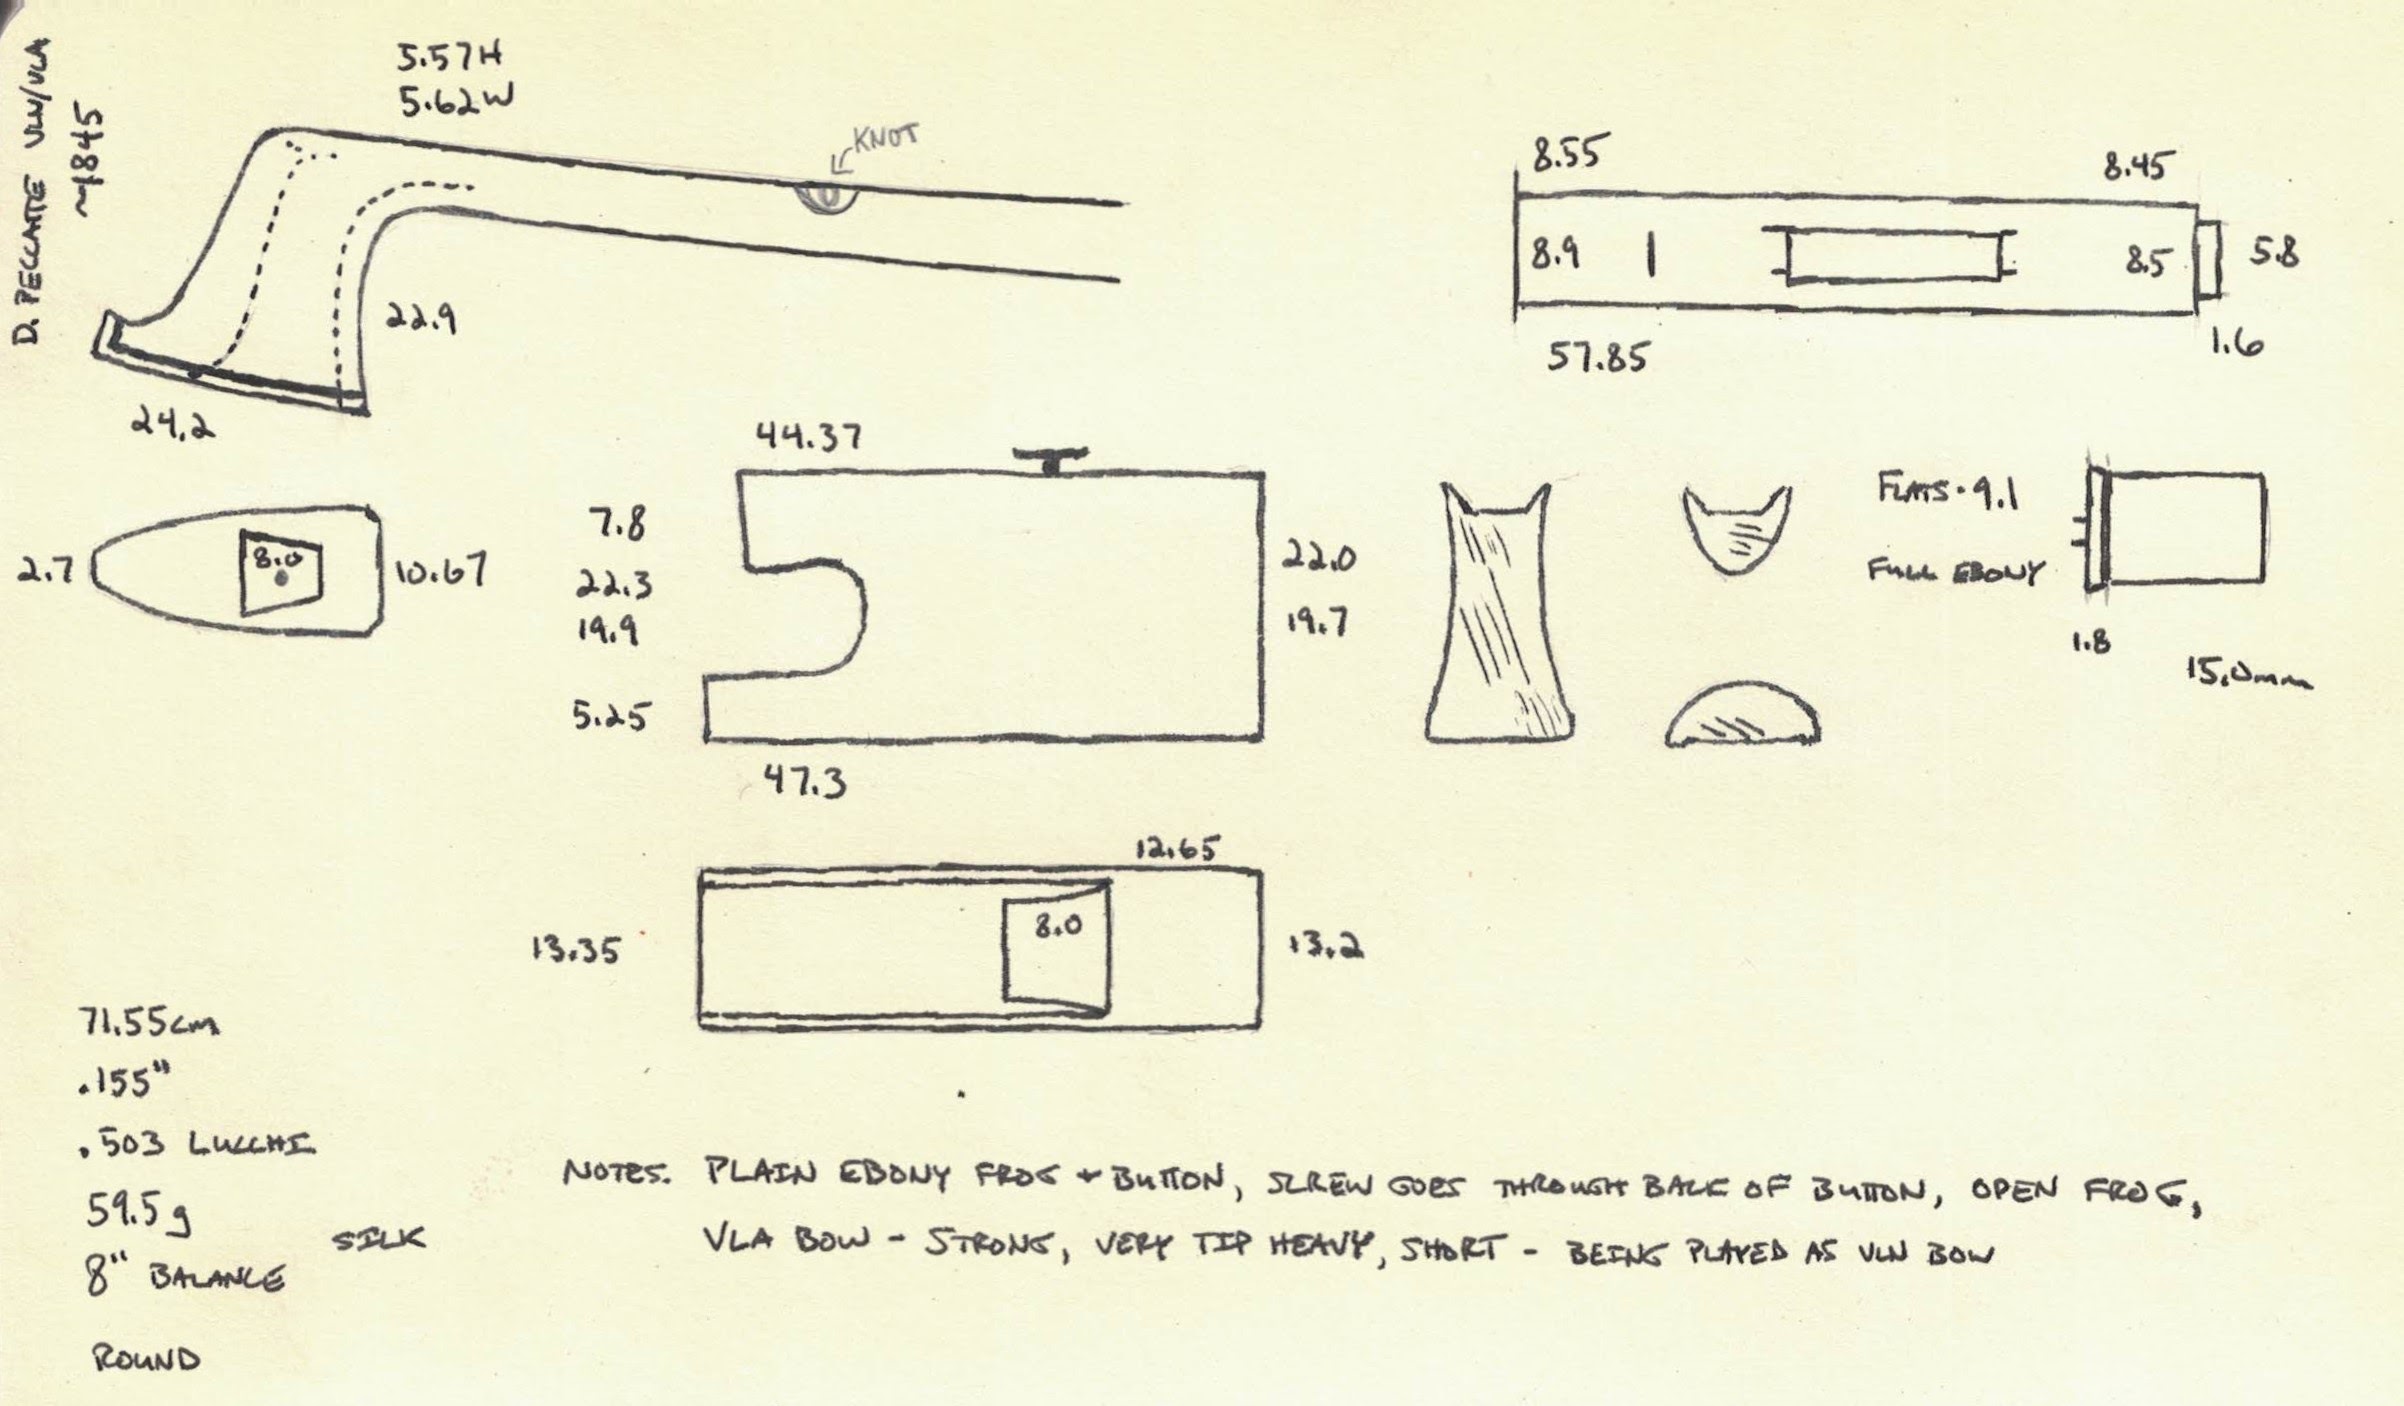 D. PECCATTE VLN/VLA
~1845
5.57H
5.62W
KNOT
22.9
24.2
8.55
8.45
8.9
8.5
5.8
57.85
1.6
2.7
8.0
10.67
44.37
7.8
22.3
19.9
5.25
22.0
19.7
47.3
FLATS · 9.1
FULL EBONY
1.8
15.0mm
12.65
13.35
8.0
13.2
71.55cm
.155"
.503 LUCCHI
59.5g
SILK
8" BALANCE
ROUND
NOTES. PLAIN EBONY FROG + BUTTON, SCREW GOES THROUGH BACK OF BUTTON, OPEN FROG,
VLA BOW - STRONG, VERY TIP HEAVY, SHORT - BEING PLAYED AS VLN BOW